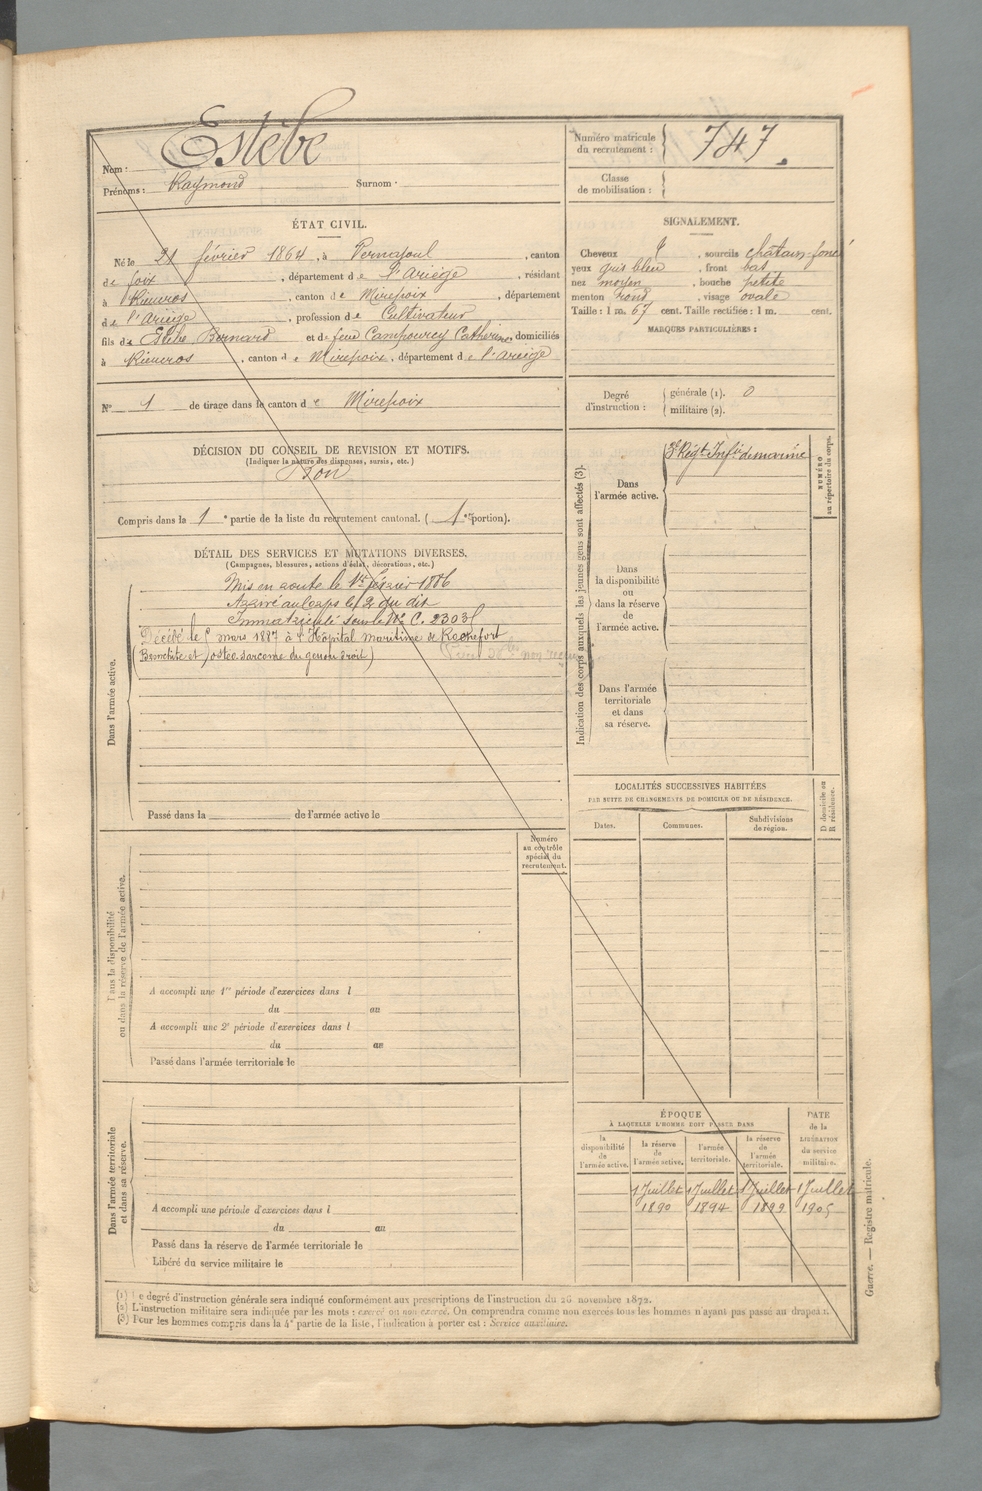 Nom : Estèbe
Prénoms : Raymond Surnom :
Numéro matricule
du recrutement : 747.
Classe
de mobilisation :
ÉTAT CIVIL.
Né le 21 février 1864, à Vernajoul, canton
de foix, département de l'Ariège, résidant
à Rieucros, canton de Mirepoix, département
de l'Ariège, profession de Cultivateur
fils de Estèbe Bernard et de feue Campourcy Catherine, domiciliés
à Rieucros, canton de Mirepoix, département de l'Ariège
N° 1 de tirage dans le canton de Mirepoix
SIGNALEMENT.
Cheveux , sourcils chatain-foncé
yeux gris bleu, front bas
nez moyen, bouche petite
menton rond, visage ovale
Taille : 1 m. 67 cent. Taille rectifiée : 1 m. cent.
MARQUES PARTICULIÈRES :
Degré
d'instruction :
générale (1). 0
militaire (2).
DÉCISION DU CONSEIL DE REVISION ET MOTIFS.
(Indiquer la nature des dispenses, sursis, etc.)
Bon
Compris dans la 1e partie de la liste du recrutement cantonal. (1e portion).
DÉTAIL DES SERVICES ET MUTATIONS DIVERSES.
(Campagnes, blessures, actions d'éclat, décorations, etc.)
Dans l'armée active.
Mis en route le 1er février 1886
Arrivé au Corps le 2 du dit
Immatriculé sous le N° C. 2303
Décédé le mars 1887 à l'Hôpital maritime de Rochefort
(Bronchite et ostéo sarcome du genou droit)
Passé dans la de l'armée active le
Indication des corps auxquels les jeunes gens sont affectés (3).
Dans
l'armée active.
3e Régt Infie de marine
NUMÉRO
au répertoire du corps.
Dans
la disponibilité
ou
dans la réserve
de
l'armée active.
Dans l'armée
territoriale
et dans
sa réserve.
LOCALITÉS SUCCESSIVES HABITÉES
PAR SUITE DE CHANGEMENTS DE DOMICILE OU DE RÉSIDENCE.
Dates.
Communes.
Subdivisions
de région.
D domicile ou
R résidence.
Numéro
au contrôle
spécial du
recrutement.
Dans la disponibilité
ou dans la réserve de l'armée active.
A accompli une 1re période d'exercices dans l
du au
A accompli une 2e période d'exercices dans l
du au
Passé dans l'armée territoriale le
Dans l'armée territoriale
et dans sa réserve.
A accompli une période d'exercices dans l
du au
Passé dans la réserve de l'armée territoriale le
Libéré du service militaire le
ÉPOQUE
À LAQUELLE L'HOMME DOIT PASSER DANS
la
disponibilité
de
l'armée active.
la réserve
de
l'armée active.
l'armée
territoriale.
la réserve
de
l'armée
territoriale.
DATE
de la
LIBÉRATION
du service
militaire.
1 Juillet 1 Juillet 1 Juillet 1 Juillet
1890 1894 1899 1905
(1) Le degré d'instruction générale sera indiqué conformément aux prescriptions de l'instruction du 26 novembre 1872.
(2) L'instruction militaire sera indiquée par les mots : exercé ou non exercé. On comprendra comme non exercés tous les hommes n'ayant pas passé au drapeau.
(3) Pour les hommes compris dans la 4e partie de la liste, l'indication à porter est : Service auxiliaire.
Guerre. — Registre matricule.